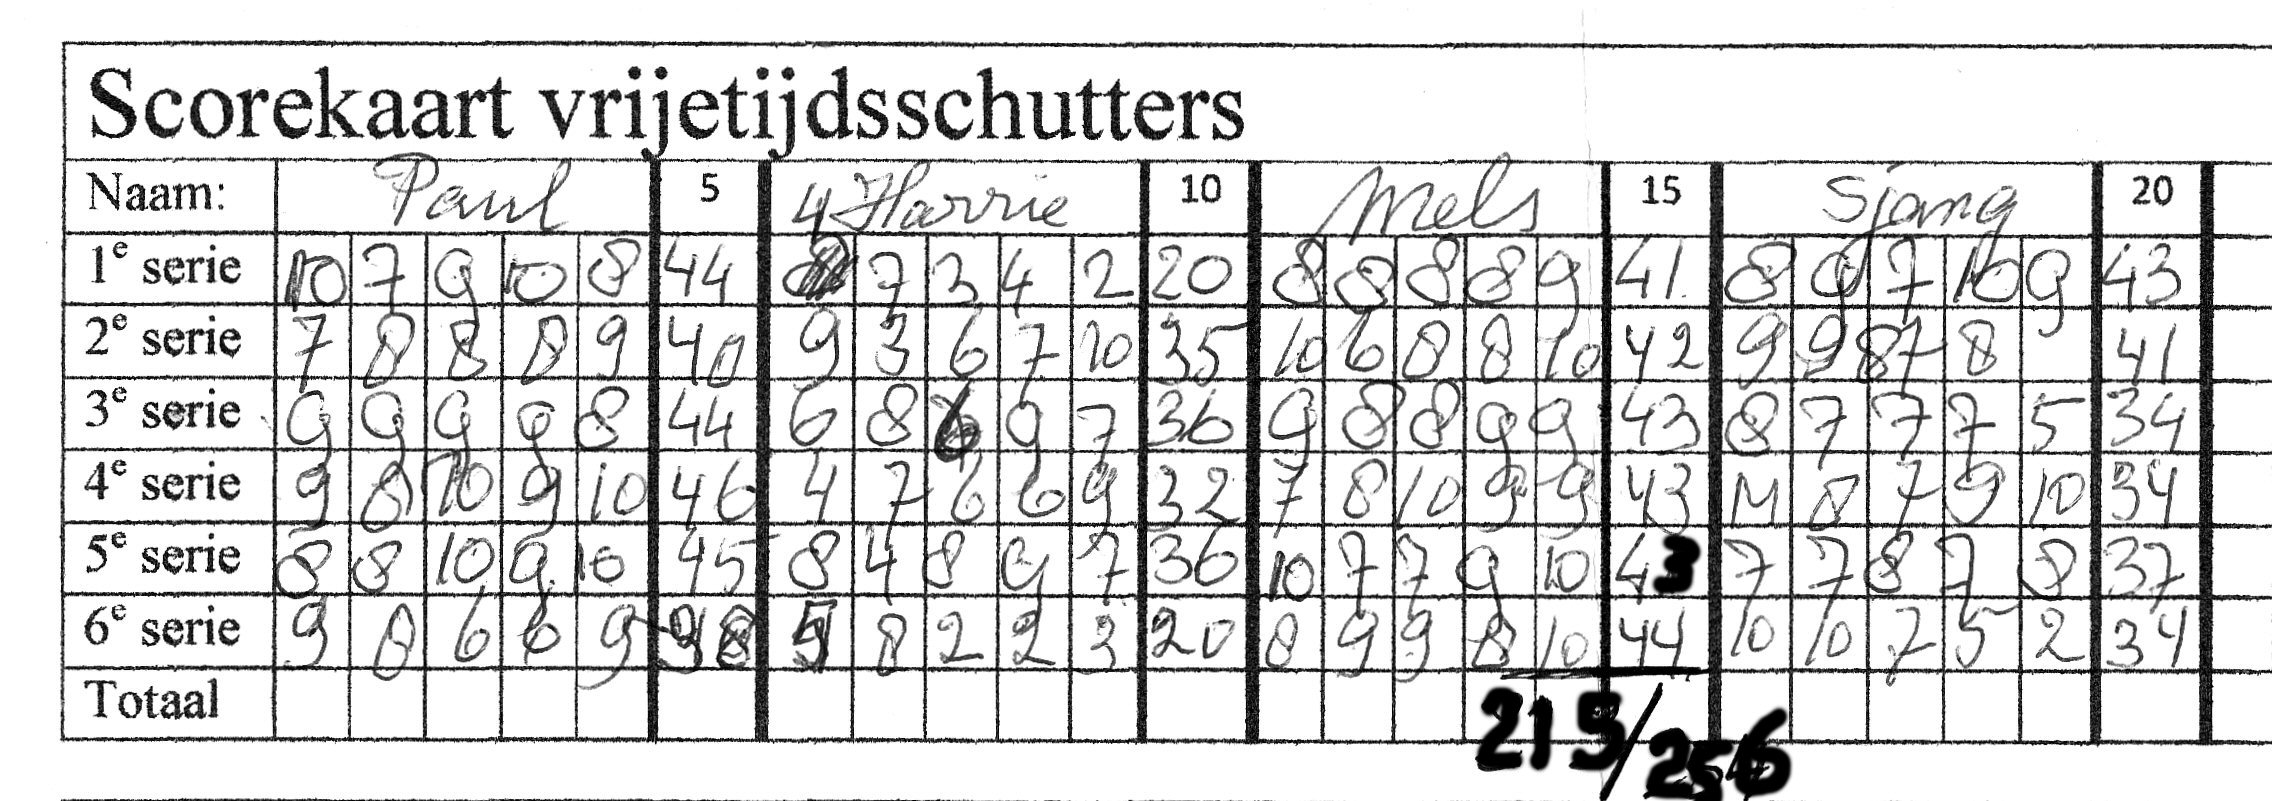 Scorekaart vrijetijdsschutters
Naam: Paul 5 Harrie 10 Mels 15 Sjang 20
1e serie 10 7 9 10 8 44 4 7 3 4 2 20 8 8 8 8 9 41 8 9 7 10 9 43
2e serie 7 8 8 8 9 40 9 3 6 7 10 35 10 6 8 8 10 42 9 9 8 7 8 41
3e serie 9 9 9 9 8 44 6 8 6 9 7 36 9 8 8 9 9 43 8 7 7 7 5 34
4e serie 9 8 10 9 10 46 4 7 6 6 9 32 7 8 10 9 9 43 M 8 7 9 10 34
5e serie 8 8 10 9 10 45 8 4 8 9 7 36 10 7 7 9 10 43 7 7 8 7 8 37
6e serie 9 8 6 6 9 38 5 8 2 2 3 20 8 9 9 8 10 44 10 10 7 5 2 34
Totaal 215/256